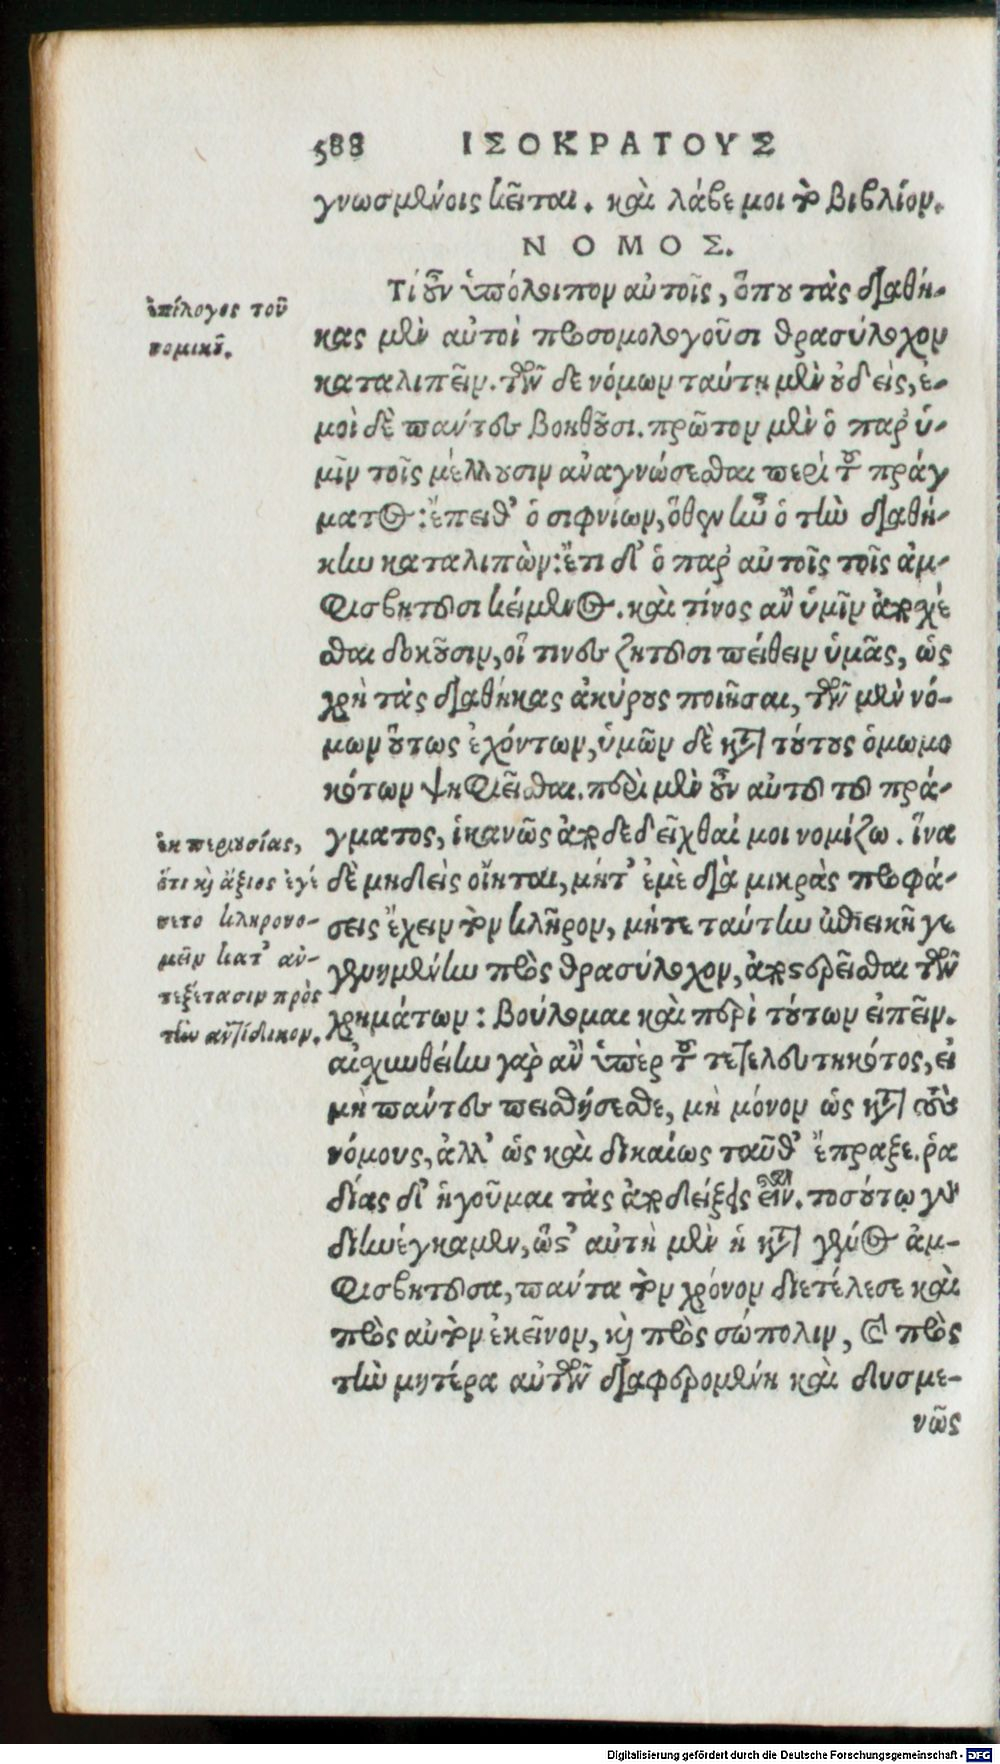 588 ΙΣΟΚΡΑΤΟΥΣ
γνωσμένοις κεῖται. καὶ λάβε μοι τὸ βιβλίον.
ΝΟΜΟΣ.
Τί οὖν ὑπόλοιπον αὐτοῖς, ὅπου τὰς διαθή-
κας μὲν αὐτοὶ προσομολογοῦσι θρασύλοχον
καταλιπεῖν. τῶν δὲ νόμων ταύτῃ μὲν οὐδεὶς, ἐ-
μοὶ δὲ πάντες βοηθοῦσι. πρῶτον μὲν ὁ παρ' ὑ-
μῖν τοῖς μέλλουσιν ἀναγνώσεσθαι περὶ τοῦ πράγ
ματος: ἔπειθ' ὁ σιφνίων, ὅθεν ἦν ὁ τὴν διαθή-
κην καταλιπών: ἔτι δ' ὁ παρ' αὐτοῖς τοῖς ἀμ-
φισβητοῦσι κείμενος. καὶ τίνος ἂν ὑμῖν ἀποσχέ
σθαι δοκοῦσιν, οἵ τινες ζητοῦσι πείθειν ὑμᾶς, ὡς
χρὴ τὰς διαθήκας ἀκύρους ποιῆσαι, τῶν μὲν νό-
μων οὕτως ἐχόντων, ὑμῶν δὲ κατὰ τούτους ὀμωμο
κότων ψηφιεῖσθαι. περὶ μὲν οὖν αὐτοῦ τοῦ πρά-
γματος, ἱκανῶς ἀποδεδεῖχθαί μοι νομίζω. ἵνα
δὲ μηδεὶς οἴηται, μήτ' ἐμὲ διὰ μικρὰς προφά-
σεις ἔχειν τὸν κλῆρον, μήτε ταύτην ἐπιεικῆ γε
γενημένην πρὸς θρασύλοχον, ἀποστερεῖσθαι τῶν
χρημάτων: βούλομαι καὶ περὶ τούτων εἰπεῖν.
αἰσχυνθείην γὰρ ἂν ὑπὲρ τοῦ τετελευτηκότος, εἰ
μὴ πάντες πεισθήσεσθε, μὴ μόνον ὡς κατὰ τοὺς
νόμους, ἀλλ' ὡς καὶ δικαίως ταῦθ' ἔπραξε. ῥᾳ
δίας δ' ἡγοῦμαι τὰς ἀποδείξεις εἶναι. τοσούτῳ γὰρ
διηνέγκαμεν, ὥστ' αὐτὴ μὲν ἡ κατὰ γένος ἀμ-
φισβητοῦσα, πάντα τὸν χρόνον διετέλεσε καὶ
πρὸς αὐτὸν ἐκεῖνον, καὶ πρὸς σώπολιν, καὶ πρὸς
τὴν μητέρα αὐτῶν διαφερομένη καὶ δυσμε-
νῶς
ἐπίλογος τοῦ
νομικοῦ.
ἐκ περιουσίας,
ὅτι καὶ ἄξιος ἐγέ
νετο κληρονο-
μεῖν κατ' ἀν-
τεξέτασιν πρὸς
τὴν ἀντίδικον.
Digitalisierung gefördert durch die Deutsche Forschungsgemeinschaft - DFG